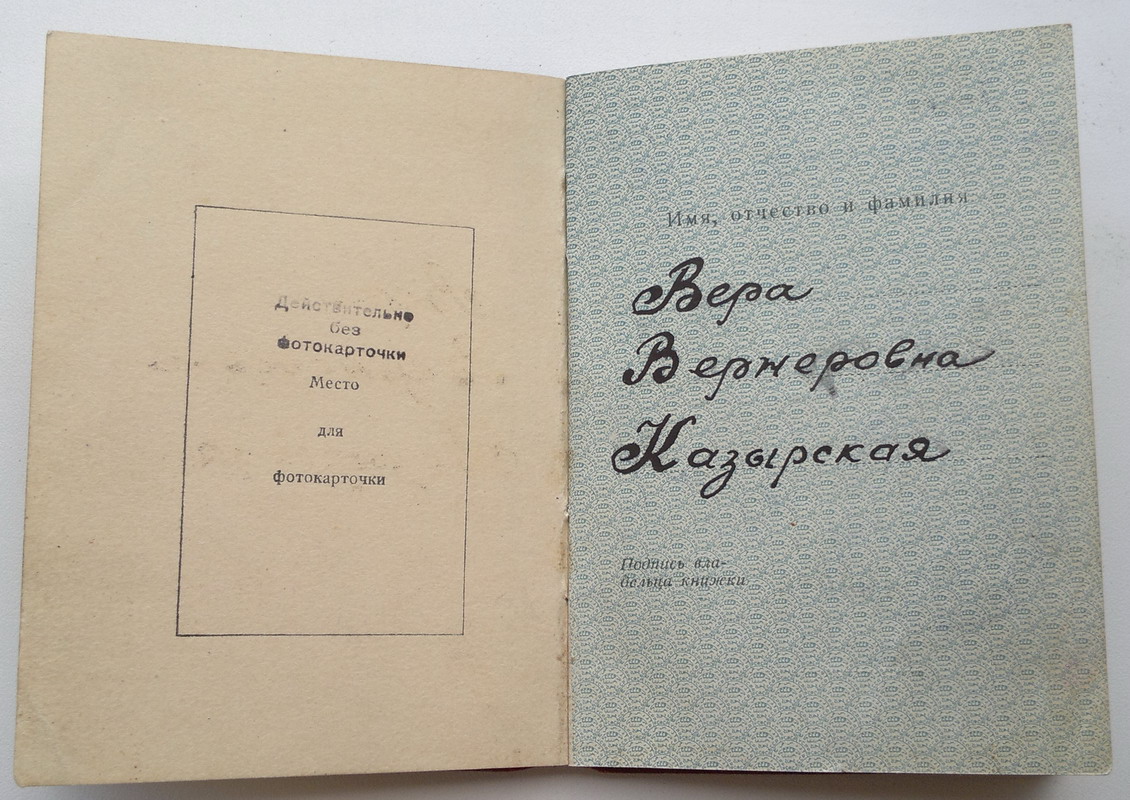 Действительно
без
фотокарточки
Место
для
фотокарточки
Имя, отчество и фамилия
Вера
Вернеровна
Казырская
Подпись вла-
дельца книжки